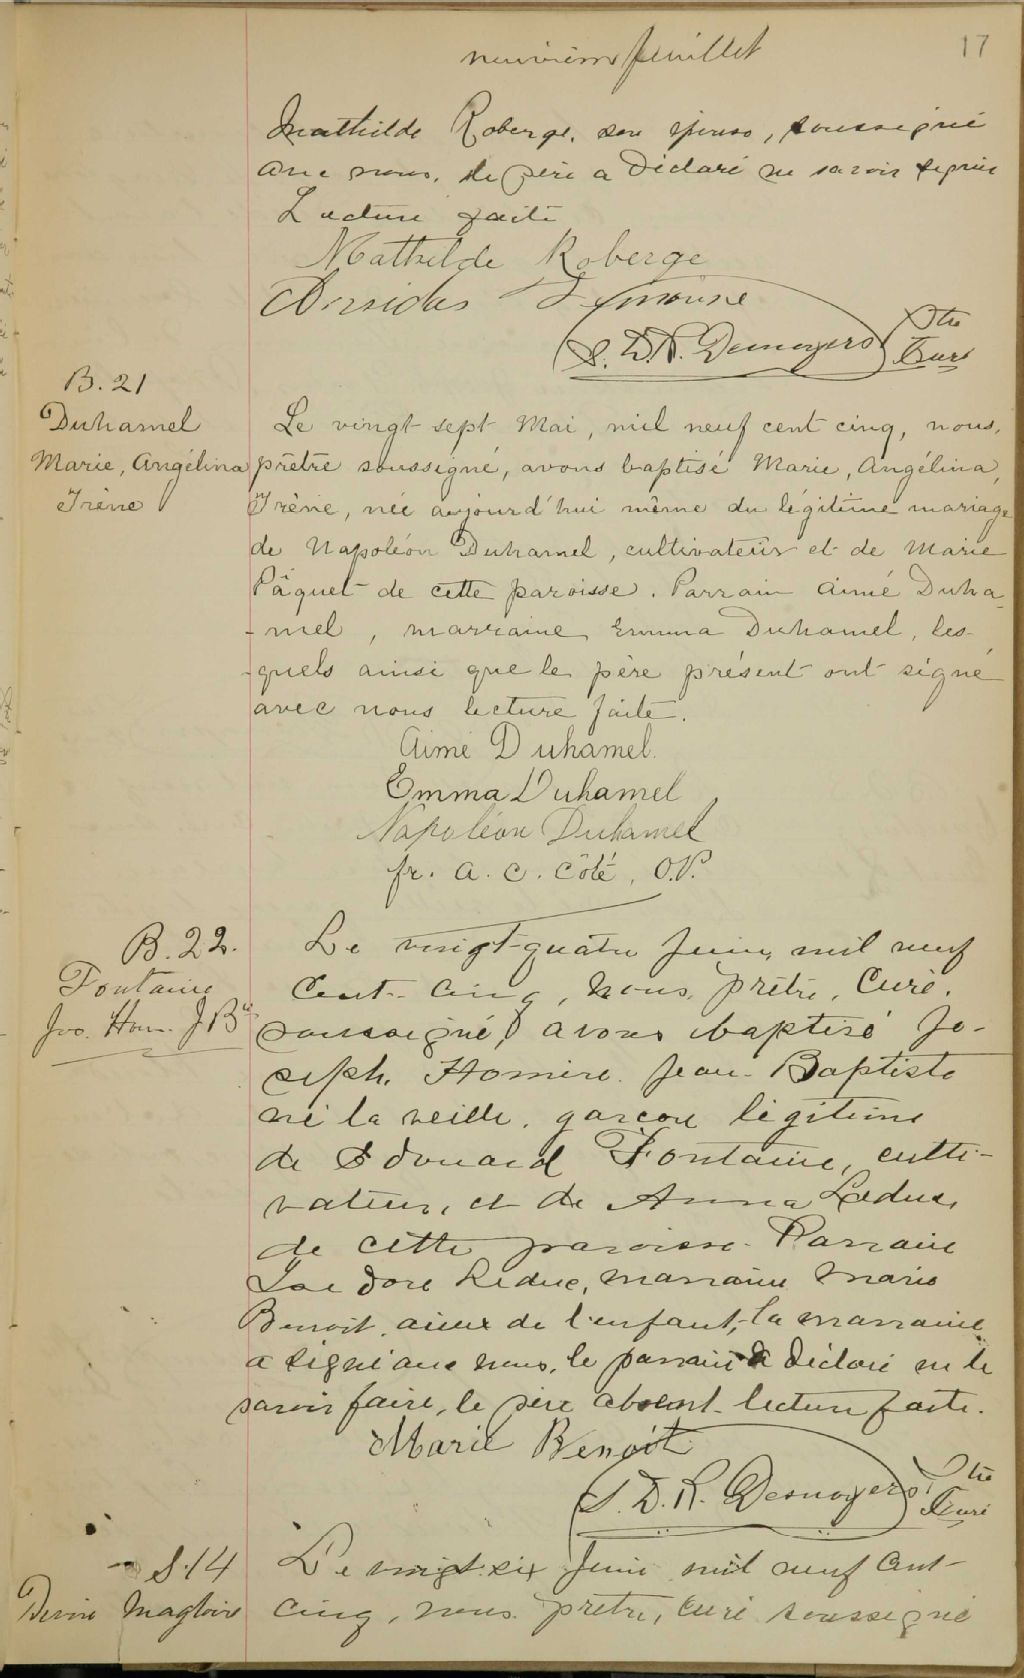 neuvième feuillet
17
Mathilde Roberge, son épouse, soussigné
avec nous, le père a déclaré ne savoir signer
Lecture faite
Mathilde Roberge
S. D. R. Desnoyers Ptre
Curé
B. 21
Duhamel
Marie, Angélina
Irène
Le vingt-sept Mai, mil neuf cent cinq, nous,
prêtre soussigné, avons baptisé Marie, Angélina,
Irène, née aujourd'hui même du légitime mariage
de Napoléon Duhamel, cultivateur et de Marie
Pâquet de cette paroisse. Parrain Aimé Duha-
-mel, marraine Emma Duhamel, les-
-quels ainsi que le père présent ont signé
avec nous lecture faite.
Aimé Duhamel.
Emma Duhamel
Napoléon Duhamel
fr. A. C. Côté, O.P.
B. 22.
Fontaine
Jos. Hom. J Bte
Le vingt-quatre Juin, mil neuf
Cent-Cinq, nous, prêtre, Curé,
soussigné, avons baptisé Jo-
seph. Homère. Jean-Baptiste
né la veille, garçon légitime
de Edouard Fontaine, culti-
vateur, et de Anna Leduc,
de cette paroisse. Parrain
Isidore Leduc, marraine Marie
Benoit, aieux de l'enfant, la marraine
a signé avec nous, le parrain a déclaré ne le
savoir faire, le père absent. lecture faite.
Marie Benoit
S. D. R. Desnoyers Ptre
Curé
S. 14
Magloire
Le vingt-six Juin mil neuf Cent-
Cinq, nous, prêtre, Curé soussigné